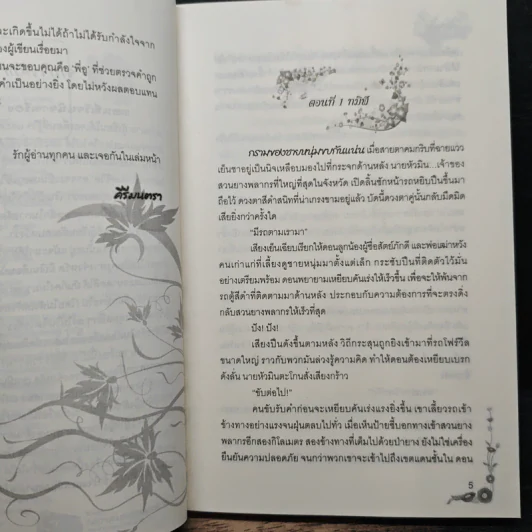 ะเกิดขึ้นไม่ได้ถ้าไม่ได้รับกำลังใจจาก
องผู้เขียนเรื่อยมา
นจะขอบคุณคือ 'พี่อู' ที่ช่วยตรวจคำถูก
ดำเป็นอย่างยิ่ง โดยไม่หวังผลตอบแทน
รักผู้อ่านทุกคน และเจอกันในเล่มหน้า
คีรีมนตรา
ตอนที่ 1
กรามของชายหนุ่มขบกันแน่น เมื่อสายตาคมกริบที่ฉายแวว
เย็นชาอยู่เป็นนิจเหลือบมองไปที่กระจกด้านหลัง นายหัวมิน...เจ้าของ
สวนยางพลากรที่ใหญ่ที่สุดในจังหวัด เปิดลิ้นชักหน้ารถหยิบปืนขึ้นมา
ถือไว้ ดวงตาสีดำสนิทที่น่าเกรงขามอยู่แล้ว บัดนี้ดวงตาคู่นั้นกลับมืดมิด
เสียยิ่งกว่าครั้งใด
"มีรถตามเรามา"
เสียงเย็นเฉียบเรียกให้ดอนลูกน้องผู้ซื่อสัตย์ภักดี และพ่อเฒ่าหวัง
คนเก่าแก่ที่เลี้ยงดูชายหนุ่มมาตั้งแต่เล็ก กระชับปืนที่ติดตัวไว้มั่น
อย่างเตรียมพร้อม ดอนพยายามเหยียบคันเร่งให้เร็วขึ้น เพื่อจะให้พ้นจาก
รถตู้สีดำที่ติดตามมาด้านหลัง ประกอบกับความต้องการที่จะตรงดิ่ง
กลับสวนยางพลากรให้เร็วที่สุด
ปัง! ปัง!
เสียงปืนดังขึ้นตามหลัง วิถีกระสุนถูกยิงเข้ามาที่รถโฟร์วีล
ขนาดใหญ่ ราวกับพวกมันล่วงรู้ความคิด ทำให้ดอนต้องเหยียบเบรก
ดังลั่น นายหัวมินตะโกนสั่งเสียงกร้าว
"ขับต่อไป!"
คนขับรับคำก่อนจะเหยียบคันเร่งแรงยิ่งขึ้น เขาเลี้ยวรถเข้า
ข้างทางอย่างแรงจนฝุ่นตลบไปทั่ว เมื่อเห็นป้ายชี้บอกทางเข้าสวนยาง
พลากรอีกสองกิโลเมตร สองข้างทางที่เต็มไปด้วยป่ายาง ยังไม่ใช่เครื่อง
ยืนยันความปลอดภัย จนกว่าพวกเขาจะเข้าไปถึงเขตแดนชั้นใน ดอน
5